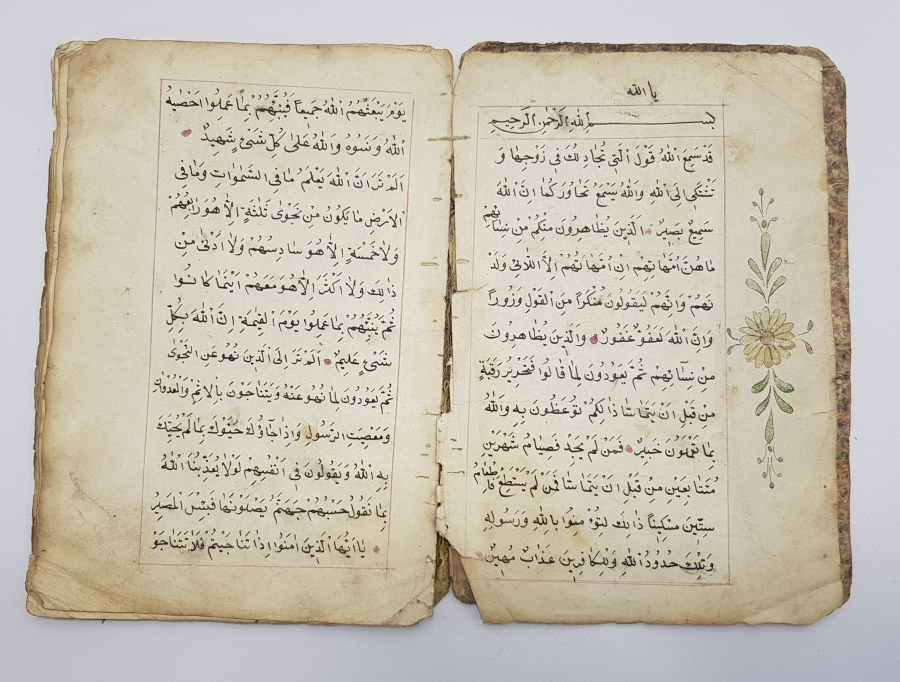 يا الله
بسم الله الرحمن الرحيم
قَدْ سَمِعَ اللهُ قَوْلَ الَّتِي تُجَادِلُكَ فِي زَوْجِهَا وَ
تَشْتَكِي اِلَى اللهِ وَاللهُ يَسْمَعُ تَحَاوُرَكُمَا اِنَّ اللهَ
سَمِيعٌ بَصِيرٌ الَّذِينَ يُظَاهِرُونَ مِنْكُمْ مِنْ نِسَائِهِمْ
مَا هُنَّ اُمَّهَاتِهِمْ اِنْ اُمَّهَاتُهُمْ اِلَّا اللَّائِي وَلَدْ
نَهُمْ وَاِنَّهُمْ لَيَقُولُونَ مُنْكَرًا مِنَ الْقَوْلِ وَزُورًا
وَاِنَّ اللهَ لَعَفُوٌّ غَفُورٌ وَالَّذِينَ يُظَاهِرُونَ
مِنْ نِسَائِهِمْ ثُمَّ يَعُودُونَ لِمَا قَالُوا فَتَحْرِيرُ رَقَبَةٍ
مِنْ قَبْلِ اَنْ يَتَمَاسَّا ذَالِكُمْ تُوعَظُونَ بِهِ وَاللهُ
بِمَا تَعْمَلُونَ خَبِيرٌ فَمَنْ لَمْ يَجِدْ فَصِيَامُ شَهْرَيْنِ
مُتَتَابِعَيْنِ مِنْ قَبْلِ اَنْ يَتَمَاسَّا فَمَنْ لَمْ يَسْتَطِعْ فَاِطْعَامُ
سِتِّينَ مِسْكِينًا ذَالِكَ لِتُؤْمِنُوا بِاللهِ وَرَسُولِهِ
وَتِلْكَ حُدُودُ اللهِ وَلِلْكَافِرِينَ عَذَابٌ مُهِينٌ
يَوْمَ يَبْعَثُهُمُ اللهُ جَمِيعًا فَيُنَبِّئُهُمْ بِمَا عَمِلُوا اَحْصَيهُ
اللهُ وَنَسُوهُ وَاللهُ عَلَى كُلِّ شَيْءٍ شَهِيدٌ
اَلَمْ تَرَ اَنَّ اللهَ يَعْلَمُ مَا فِي السَّمٰوَاتِ وَمَا فِي
الْاَرْضِ مَا يَكُونُ مِنْ نَجْوٰى ثَلٰثَةٍ اِلَّا هُوَ رَابِعُهُمْ
وَلَا خَمْسَةٍ اِلَّا هُوَ سَادِسُهُمْ وَلَا اَدْنٰى مِنْ
ذَالِكَ وَلَا اَكْثَرَ اِلَّا هُوَ مَعَهُمْ اَيْنَمَا كَانُوا
ثُمَّ يُنَبِّئُهُمْ بِمَا عَمِلُوا يَوْمَ الْقِيٰمَةِ اِنَّ اللهَ بِكُلِّ
شَيْءٍ عَلِيمٌ اَلَمْ تَرَ اِلَى الَّذِينَ نُهُوا عَنِ النَّجْوٰى
ثُمَّ يَعُودُونَ لِمَا نُهُوا عَنْهُ وَيَتَنَاجَوْنَ بِالْاِثْمِ وَالْعُدْوَانِ
وَمَعْصِيَتِ الرَّسُولِ وَاِذَا جَاؤُكَ حَيَّوْكَ بِمَا لَمْ يُحَيِّكَ
بِهِ اللهُ وَيَقُولُونَ فِي اَنْفُسِهِمْ لَوْلَا يُعَذِّبُنَا اللهُ
بِمَا نَقُولُ حَسْبُهُمْ جَهَنَّمُ يَصْلَوْنَهَا فَبِئْسَ الْمَصِيرُ
يَا اَيُّهَا الَّذِينَ اٰمَنُوا اِذَا تَنَاجَيْتُمْ فَلَا تَتَنَاجَوْ